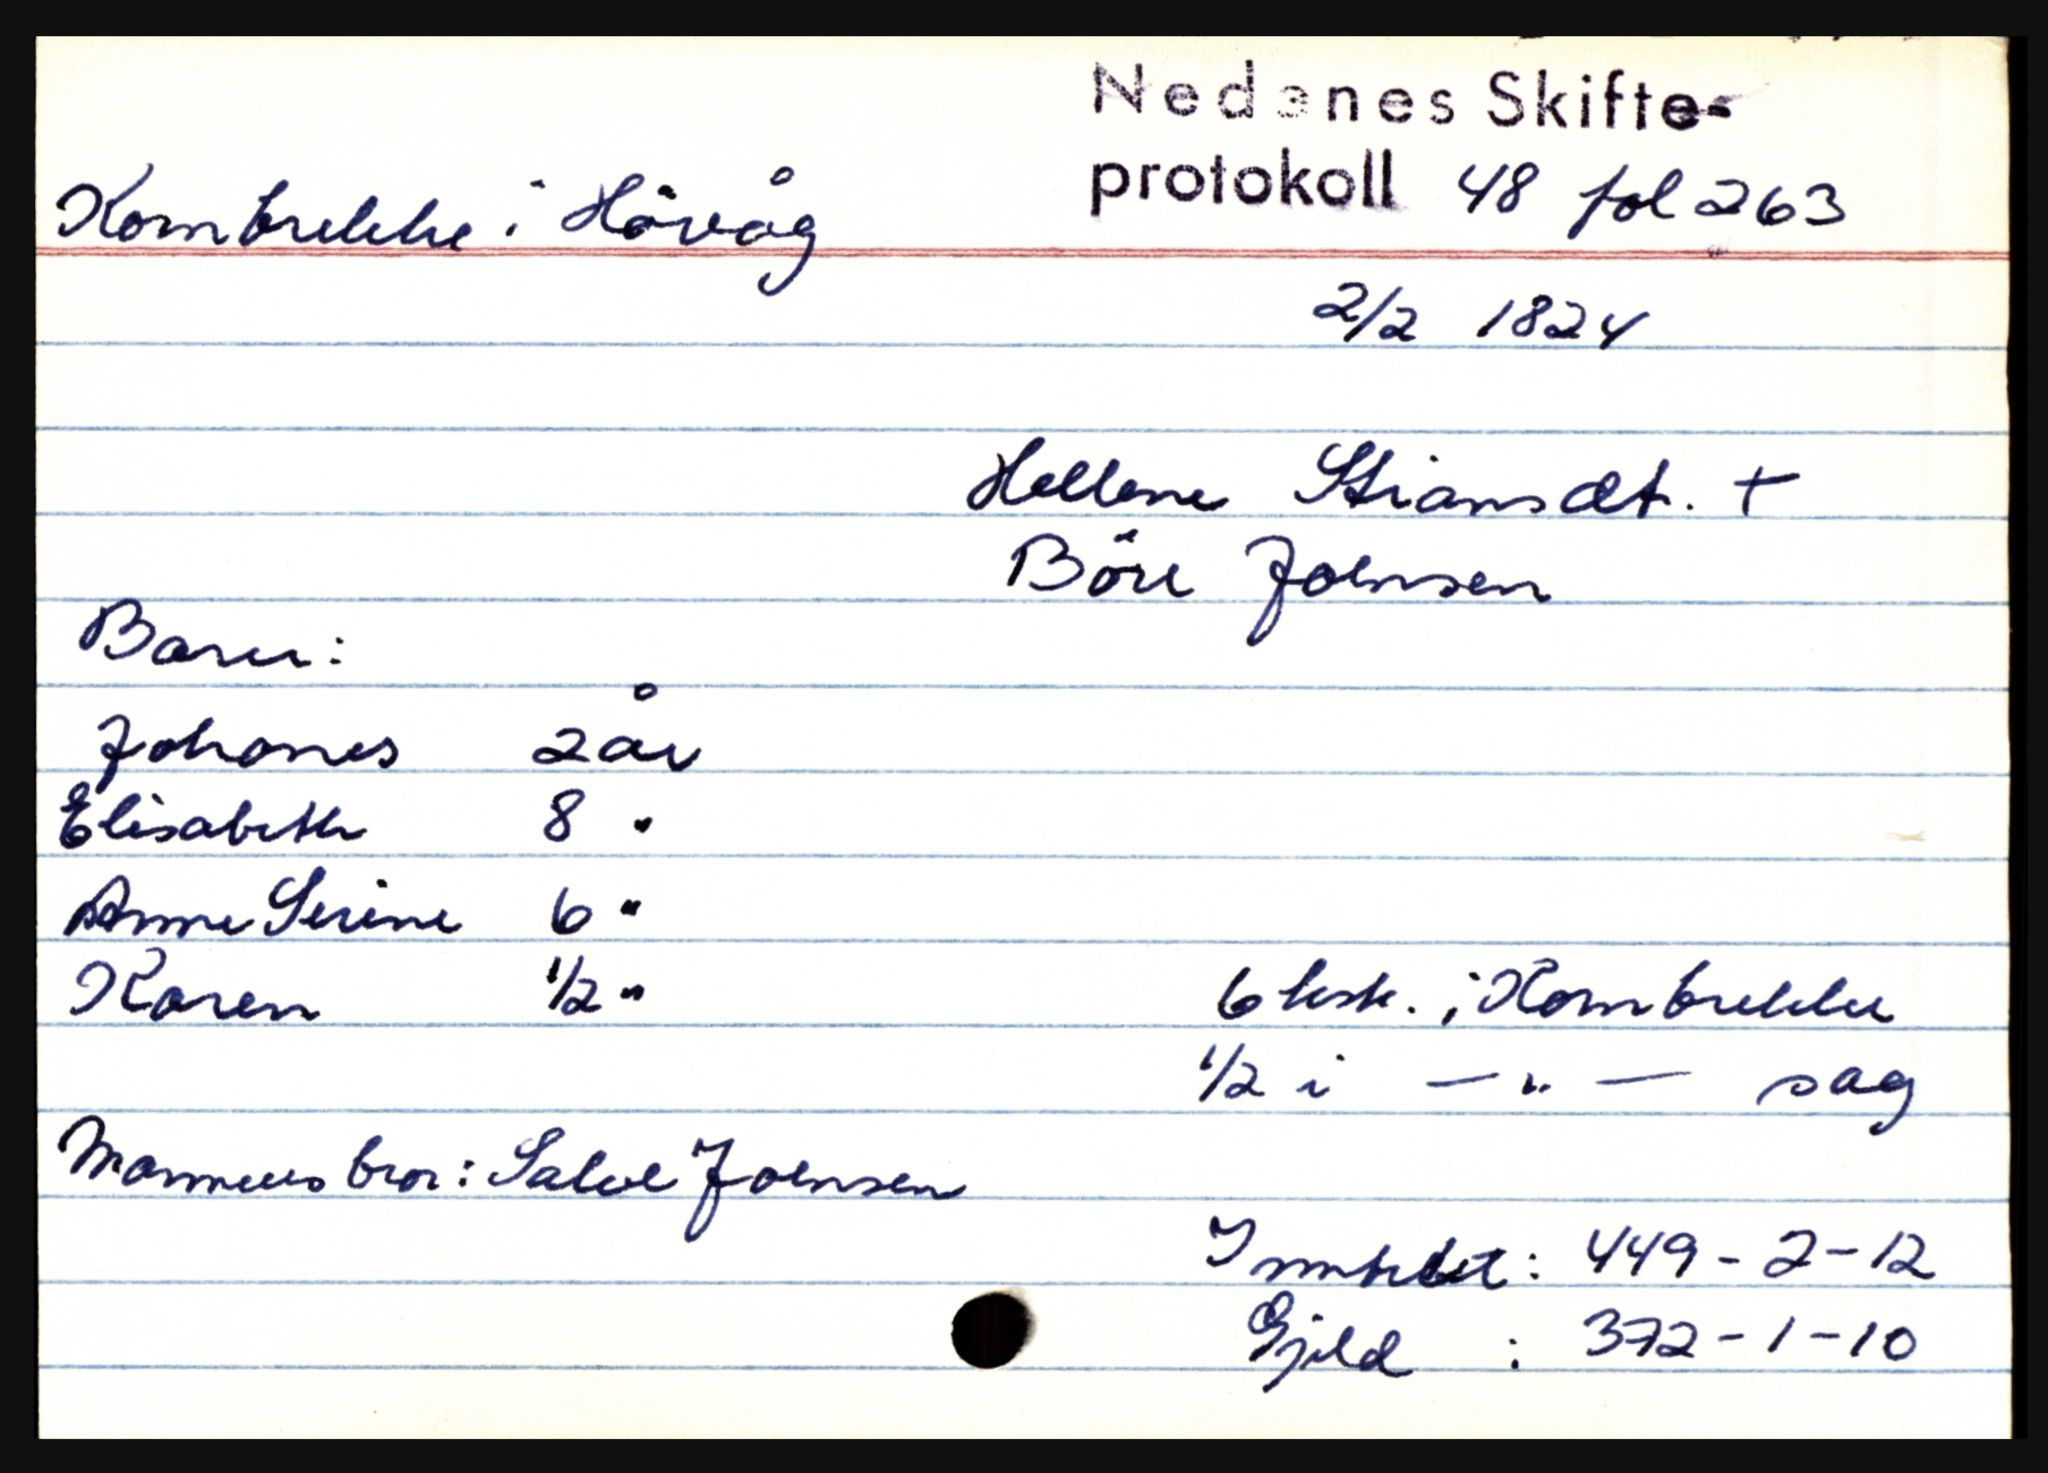 Nedenes Skifte-
protokoll 48 fol 263
Kornbrekke i Hövåg
2/2 1824
Hellene Stiansdt. +
Böre Joensen
Barn:
Johanes 2 år
Elisabeth 8 "
Anne Serine 6 "
Karen 1/2 "
6 ksk. i Kornbrekke
1/2 i — " — sag
Mannens bror: Salve Joensen
Inntekt: 449-2-12
Gjeld : 372-1-10